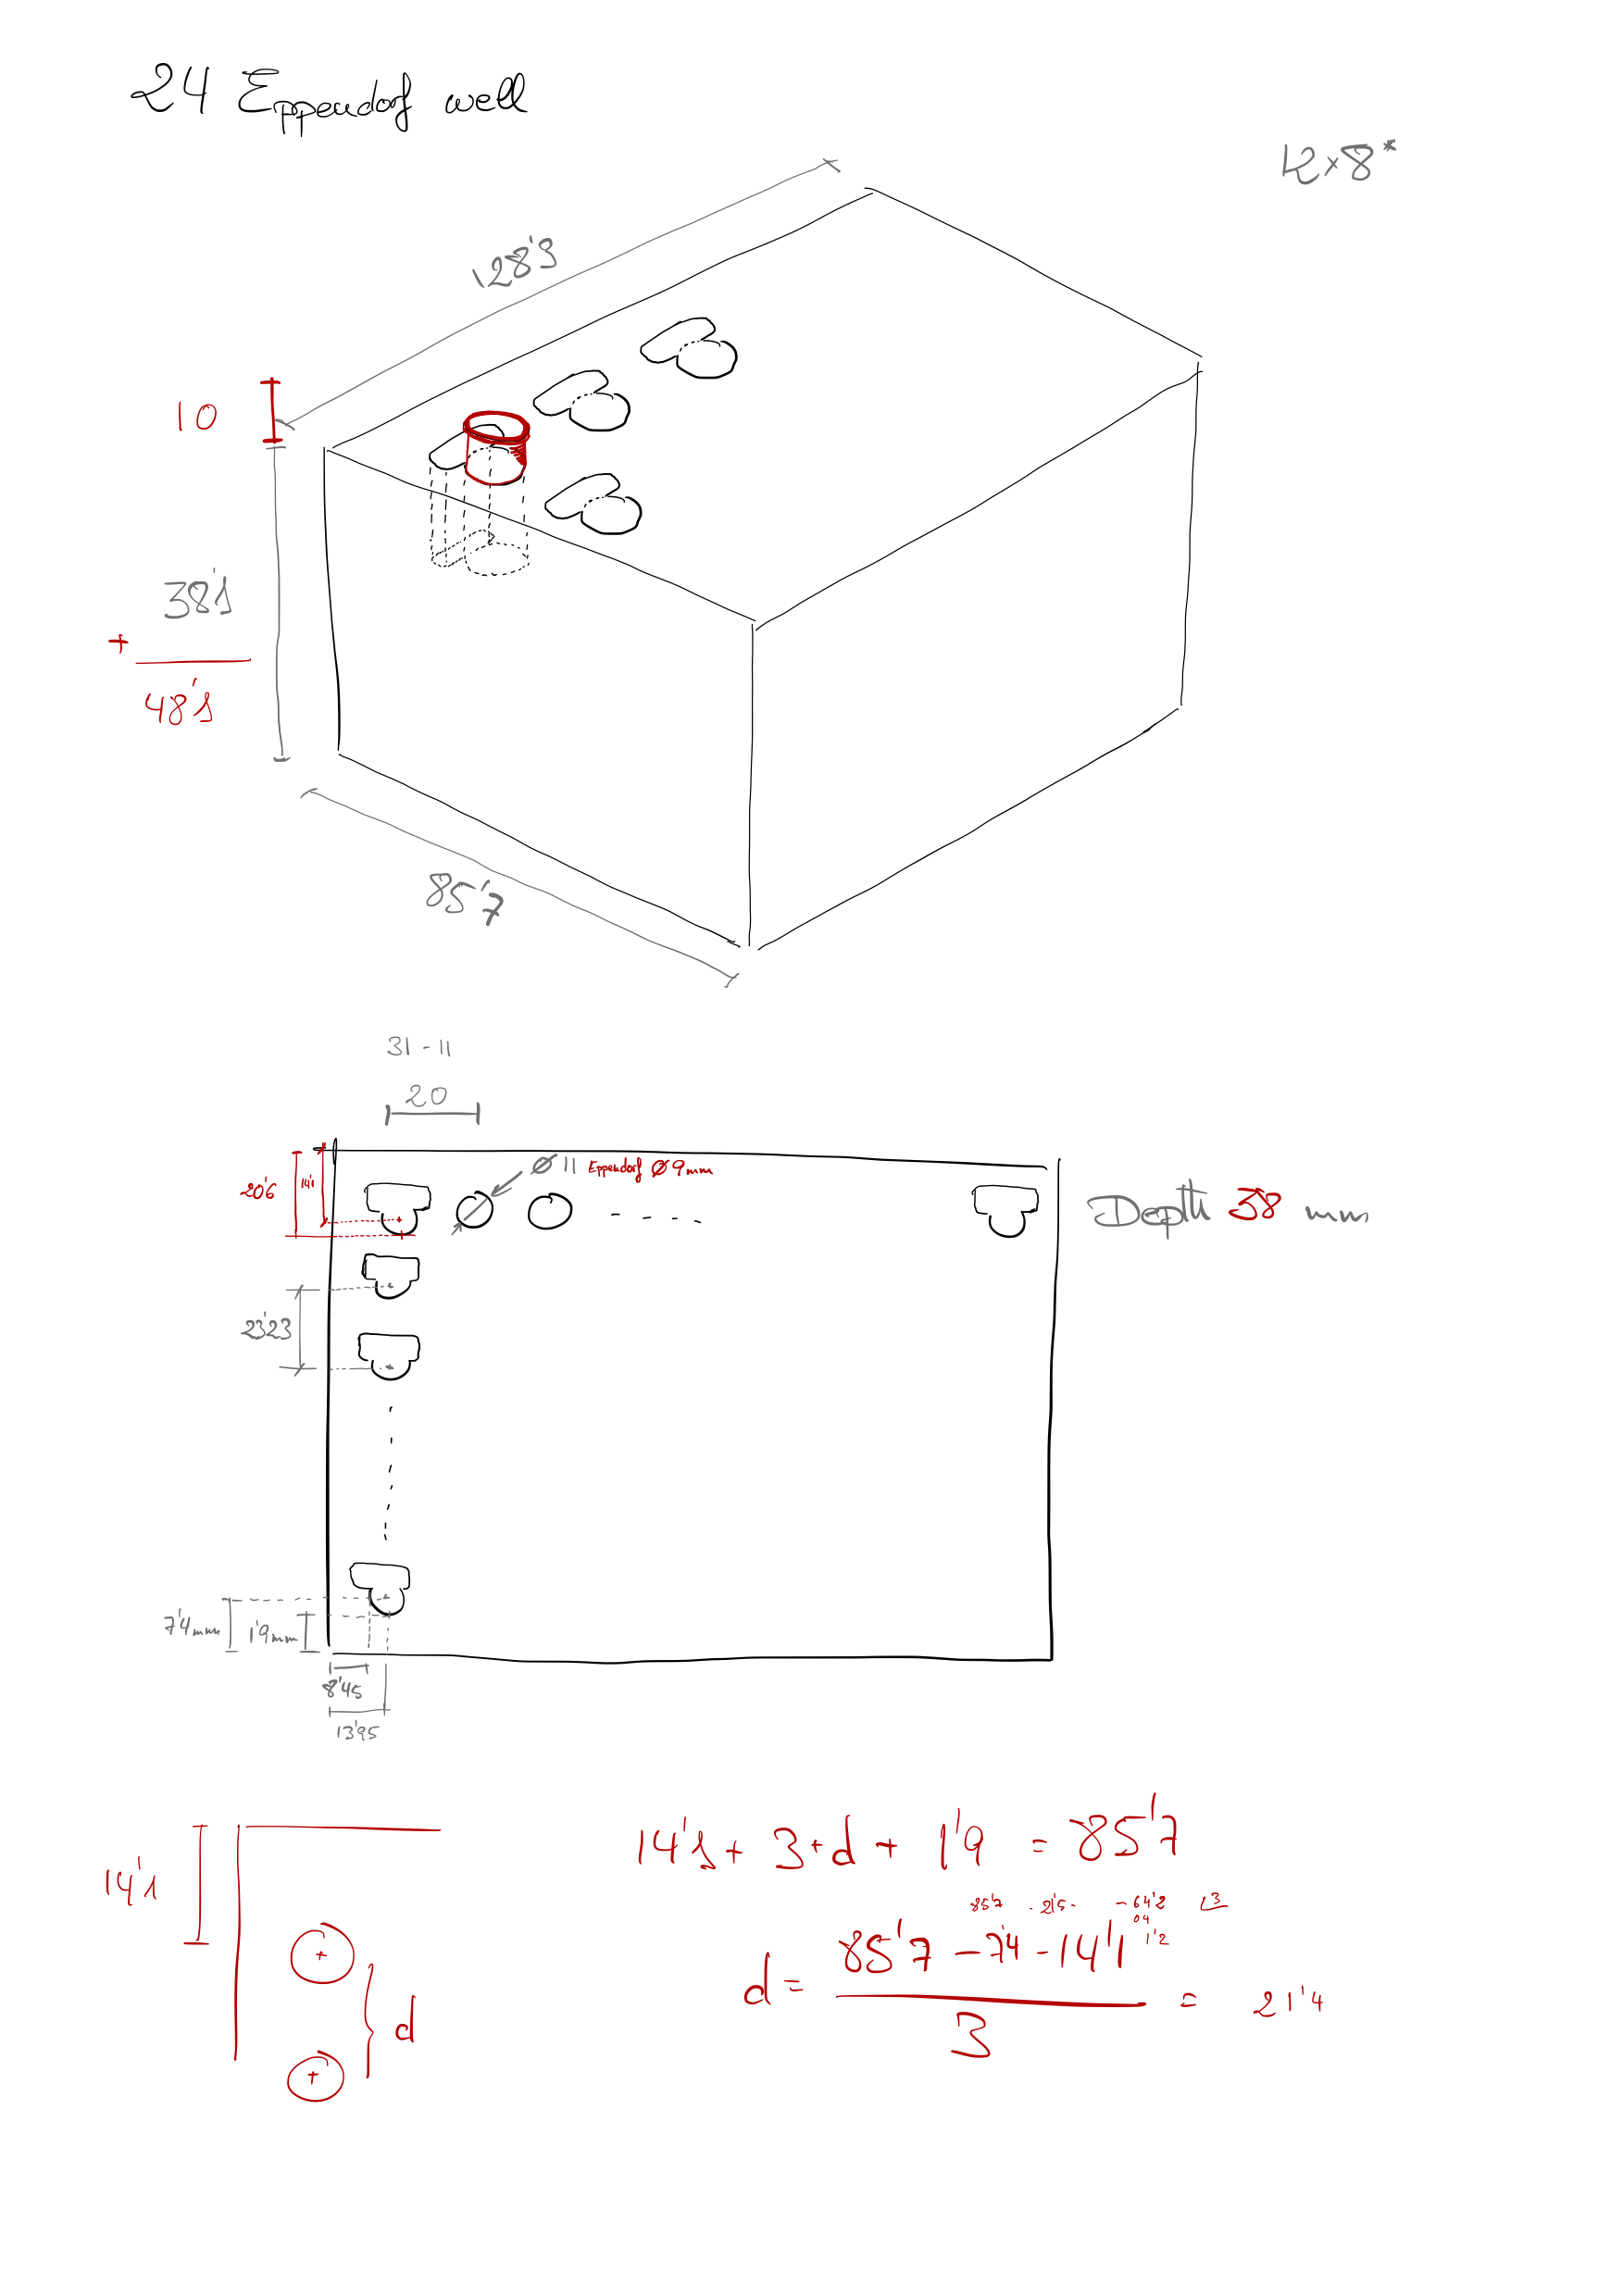 24 Eppendorf well
12×8*
128'3
10
38'1
+
48'1
85'7
31-11
20
Ø 11 Eppendorf Ø9mm
20'6
14'1
Depth 38 mm
23'23
7'4mm
1'9mm
8'45
13'95
14'1 + 3·d + 1'9 = 85'7
14'1
85'7 - 21'5 - 64'2 3
04
1'2
d = 85'7 - 7'4 - 14'1 / 3 = 21'4
d